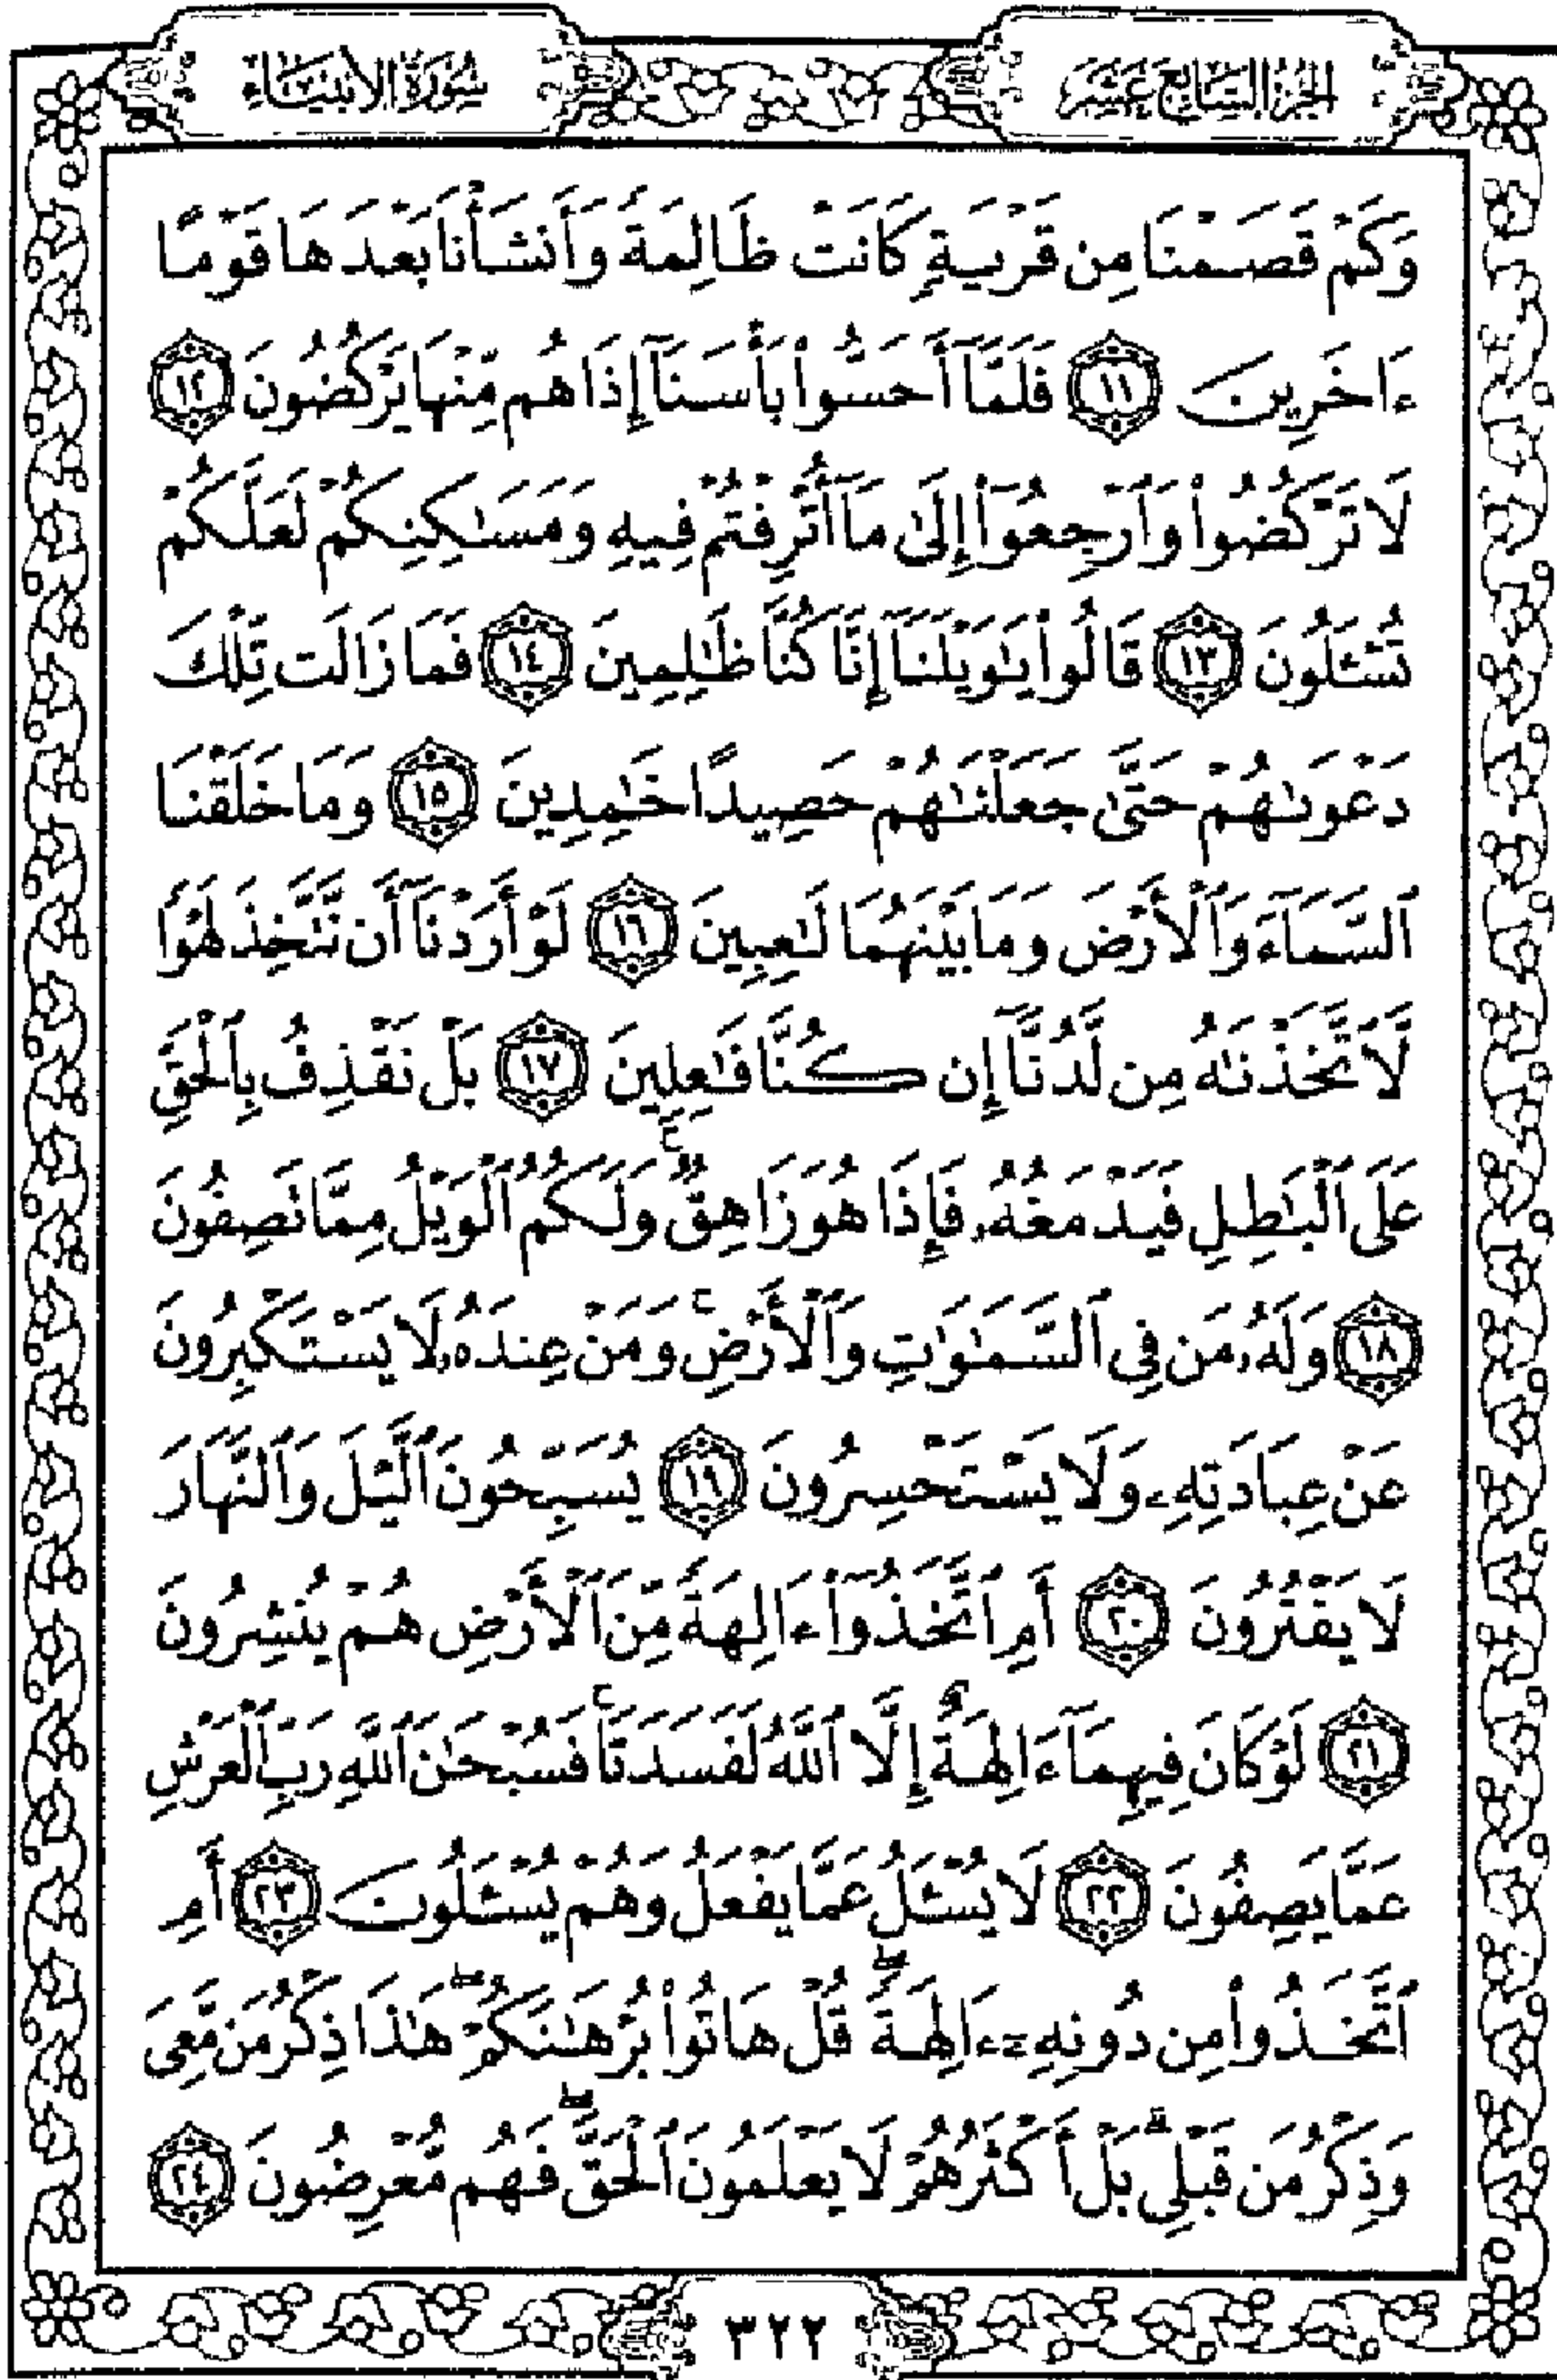 الجزء السابع عشر
سورة الأنبياء
وَكَمْ قَصَمْنَا مِن قَرْيَةٍ كَانَتْ ظَالِمَةً وَأَنشَأْنَا بَعْدَهَا قَوْمًا
ءَاخَرِينَ ١١ فَلَمَّآ أَحَسُّوا۟ بَأْسَنَآ إِذَا هُم مِّنْهَا يَرْكُضُونَ ١٢
لَا تَرْكُضُوا۟ وَٱرْجِعُوٓا۟ إِلَىٰ مَآ أُتْرِفْتُمْ فِيهِ وَمَسَٰكِنِكُمْ لَعَلَّكُمْ
تُسْـَٔلُونَ ١٣ قَالُوا۟ يَٰوَيْلَنَآ إِنَّا كُنَّا ظَٰلِمِينَ ١٤ فَمَا زَالَت تِّلْكَ
دَعْوَىٰهُمْ حَتَّىٰ جَعَلْنَٰهُمْ حَصِيدًا خَٰمِدِينَ ١٥ وَمَا خَلَقْنَا
ٱلسَّمَآءَ وَٱلْأَرْضَ وَمَا بَيْنَهُمَا لَٰعِبِينَ ١٦ لَوْ أَرَدْنَآ أَن نَّتَّخِذَ لَهْوًا
لَّٱتَّخَذْنَٰهُ مِن لَّدُنَّآ إِن كُنَّا فَٰعِلِينَ ١٧ بَلْ نَقْذِفُ بِٱلْحَقِّ
عَلَى ٱلْبَٰطِلِ فَيَدْمَغُهُۥ فَإِذَا هُوَ زَاهِقٌ ۚ وَلَكُمُ ٱلْوَيْلُ مِمَّا تَصِفُونَ
١٨ وَلَهُۥ مَن فِى ٱلسَّمَٰوَٰتِ وَٱلْأَرْضِ ۚ وَمَنْ عِندَهُۥ لَا يَسْتَكْبِرُونَ
عَنْ عِبَادَتِهِۦ وَلَا يَسْتَحْسِرُونَ ١٩ يُسَبِّحُونَ ٱلَّيْلَ وَٱلنَّهَارَ
لَا يَفْتُرُونَ ٢٠ أَمِ ٱتَّخَذُوٓا۟ ءَالِهَةً مِّنَ ٱلْأَرْضِ هُمْ يُنشِرُونَ
٢١ لَوْ كَانَ فِيهِمَآ ءَالِهَةٌ إِلَّا ٱللَّهُ لَفَسَدَتَا ۚ فَسُبْحَٰنَ ٱللَّهِ رَبِّ ٱلْعَرْشِ
عَمَّا يَصِفُونَ ٢٢ لَا يُسْـَٔلُ عَمَّا يَفْعَلُ وَهُمْ يُسْـَٔلُونَ ٢٣ أَمِ
ٱتَّخَذُوا۟ مِن دُونِهِۦٓ ءَالِهَةً ۖ قُلْ هَاتُوا۟ بُرْهَٰنَكُمْ ۖ هَٰذَا ذِكْرُ مَن مَّعِىَ
وَذِكْرُ مَن قَبْلِى ۗ بَلْ أَكْثَرُهُمْ لَا يَعْلَمُونَ ٱلْحَقَّ ۖ فَهُم مُّعْرِضُونَ ٢٤
٣٢٢